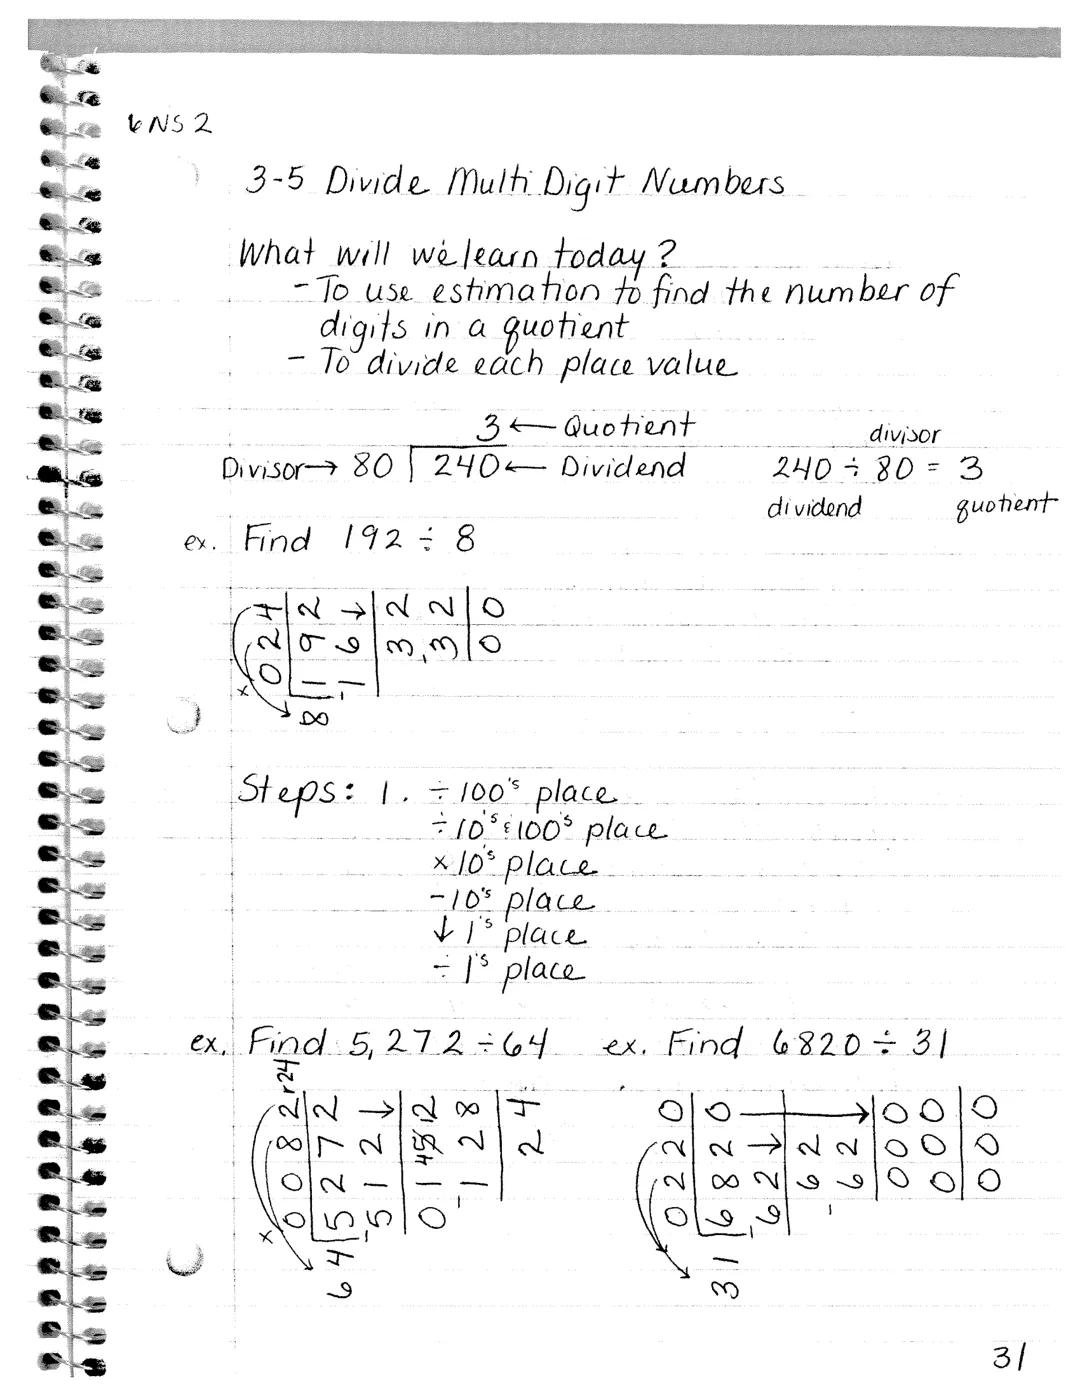 6NS2
3-5 Divide Multi Digit Numbers
What will we learn today?
- To use estimation to find the number of
digits in a quotient
- To divide each place value
3 ← Quotient
Divisor → 80 240 ← Dividend
divisor
240 ÷ 80 = 3
dividend quotient
ex. Find 192 ÷ 8
024
8 192
-16↓
32
-32
00
x
Steps: 1. ÷ 100's place
÷ 10's & 100's place
x 10's place
- 10's place
↓ 1's place
÷ 1's place
ex. Find 5,272 ÷ 64
0082 r24
64 5272
-512↓
01512
-128
24
x
ex. Find 6820 ÷ 31
0220
31 6820
-62↓
62
-62
000
000
000
31